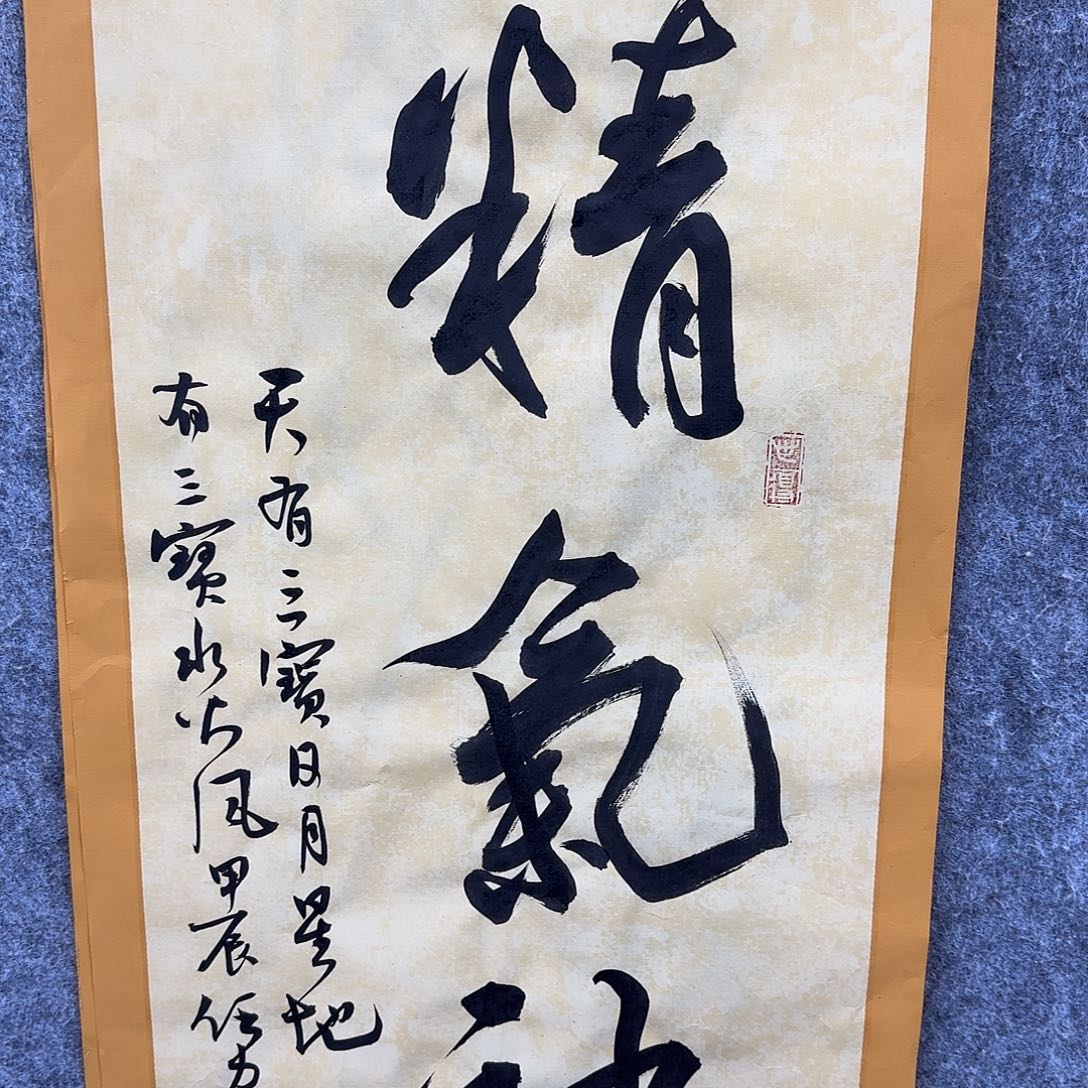 精氣神
天有三寶日月星地
有三寶水火風甲辰任